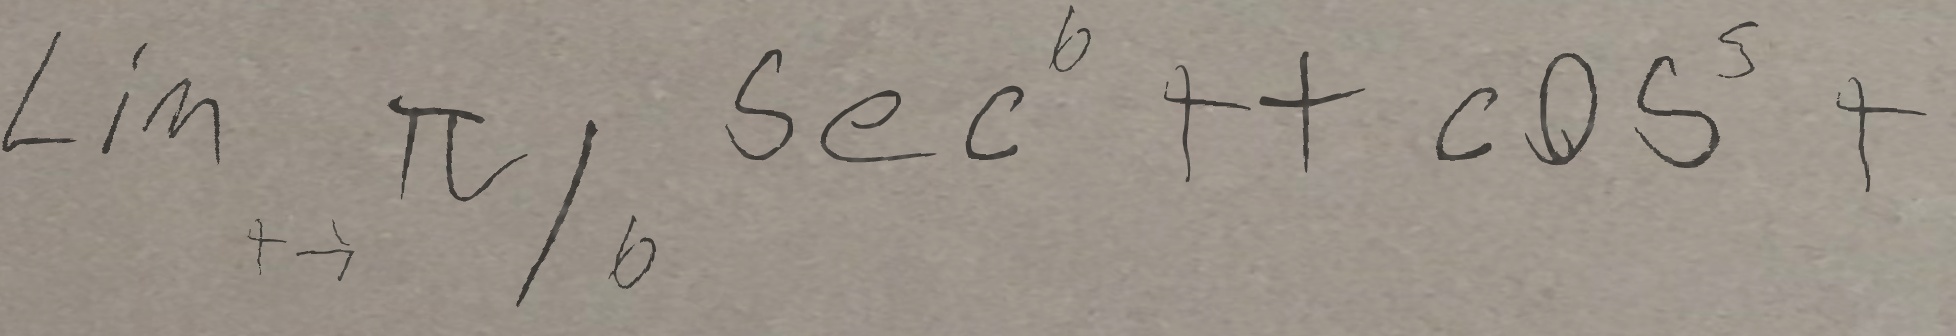 Lim t→ π/6 sec^6 t + cos^5 t